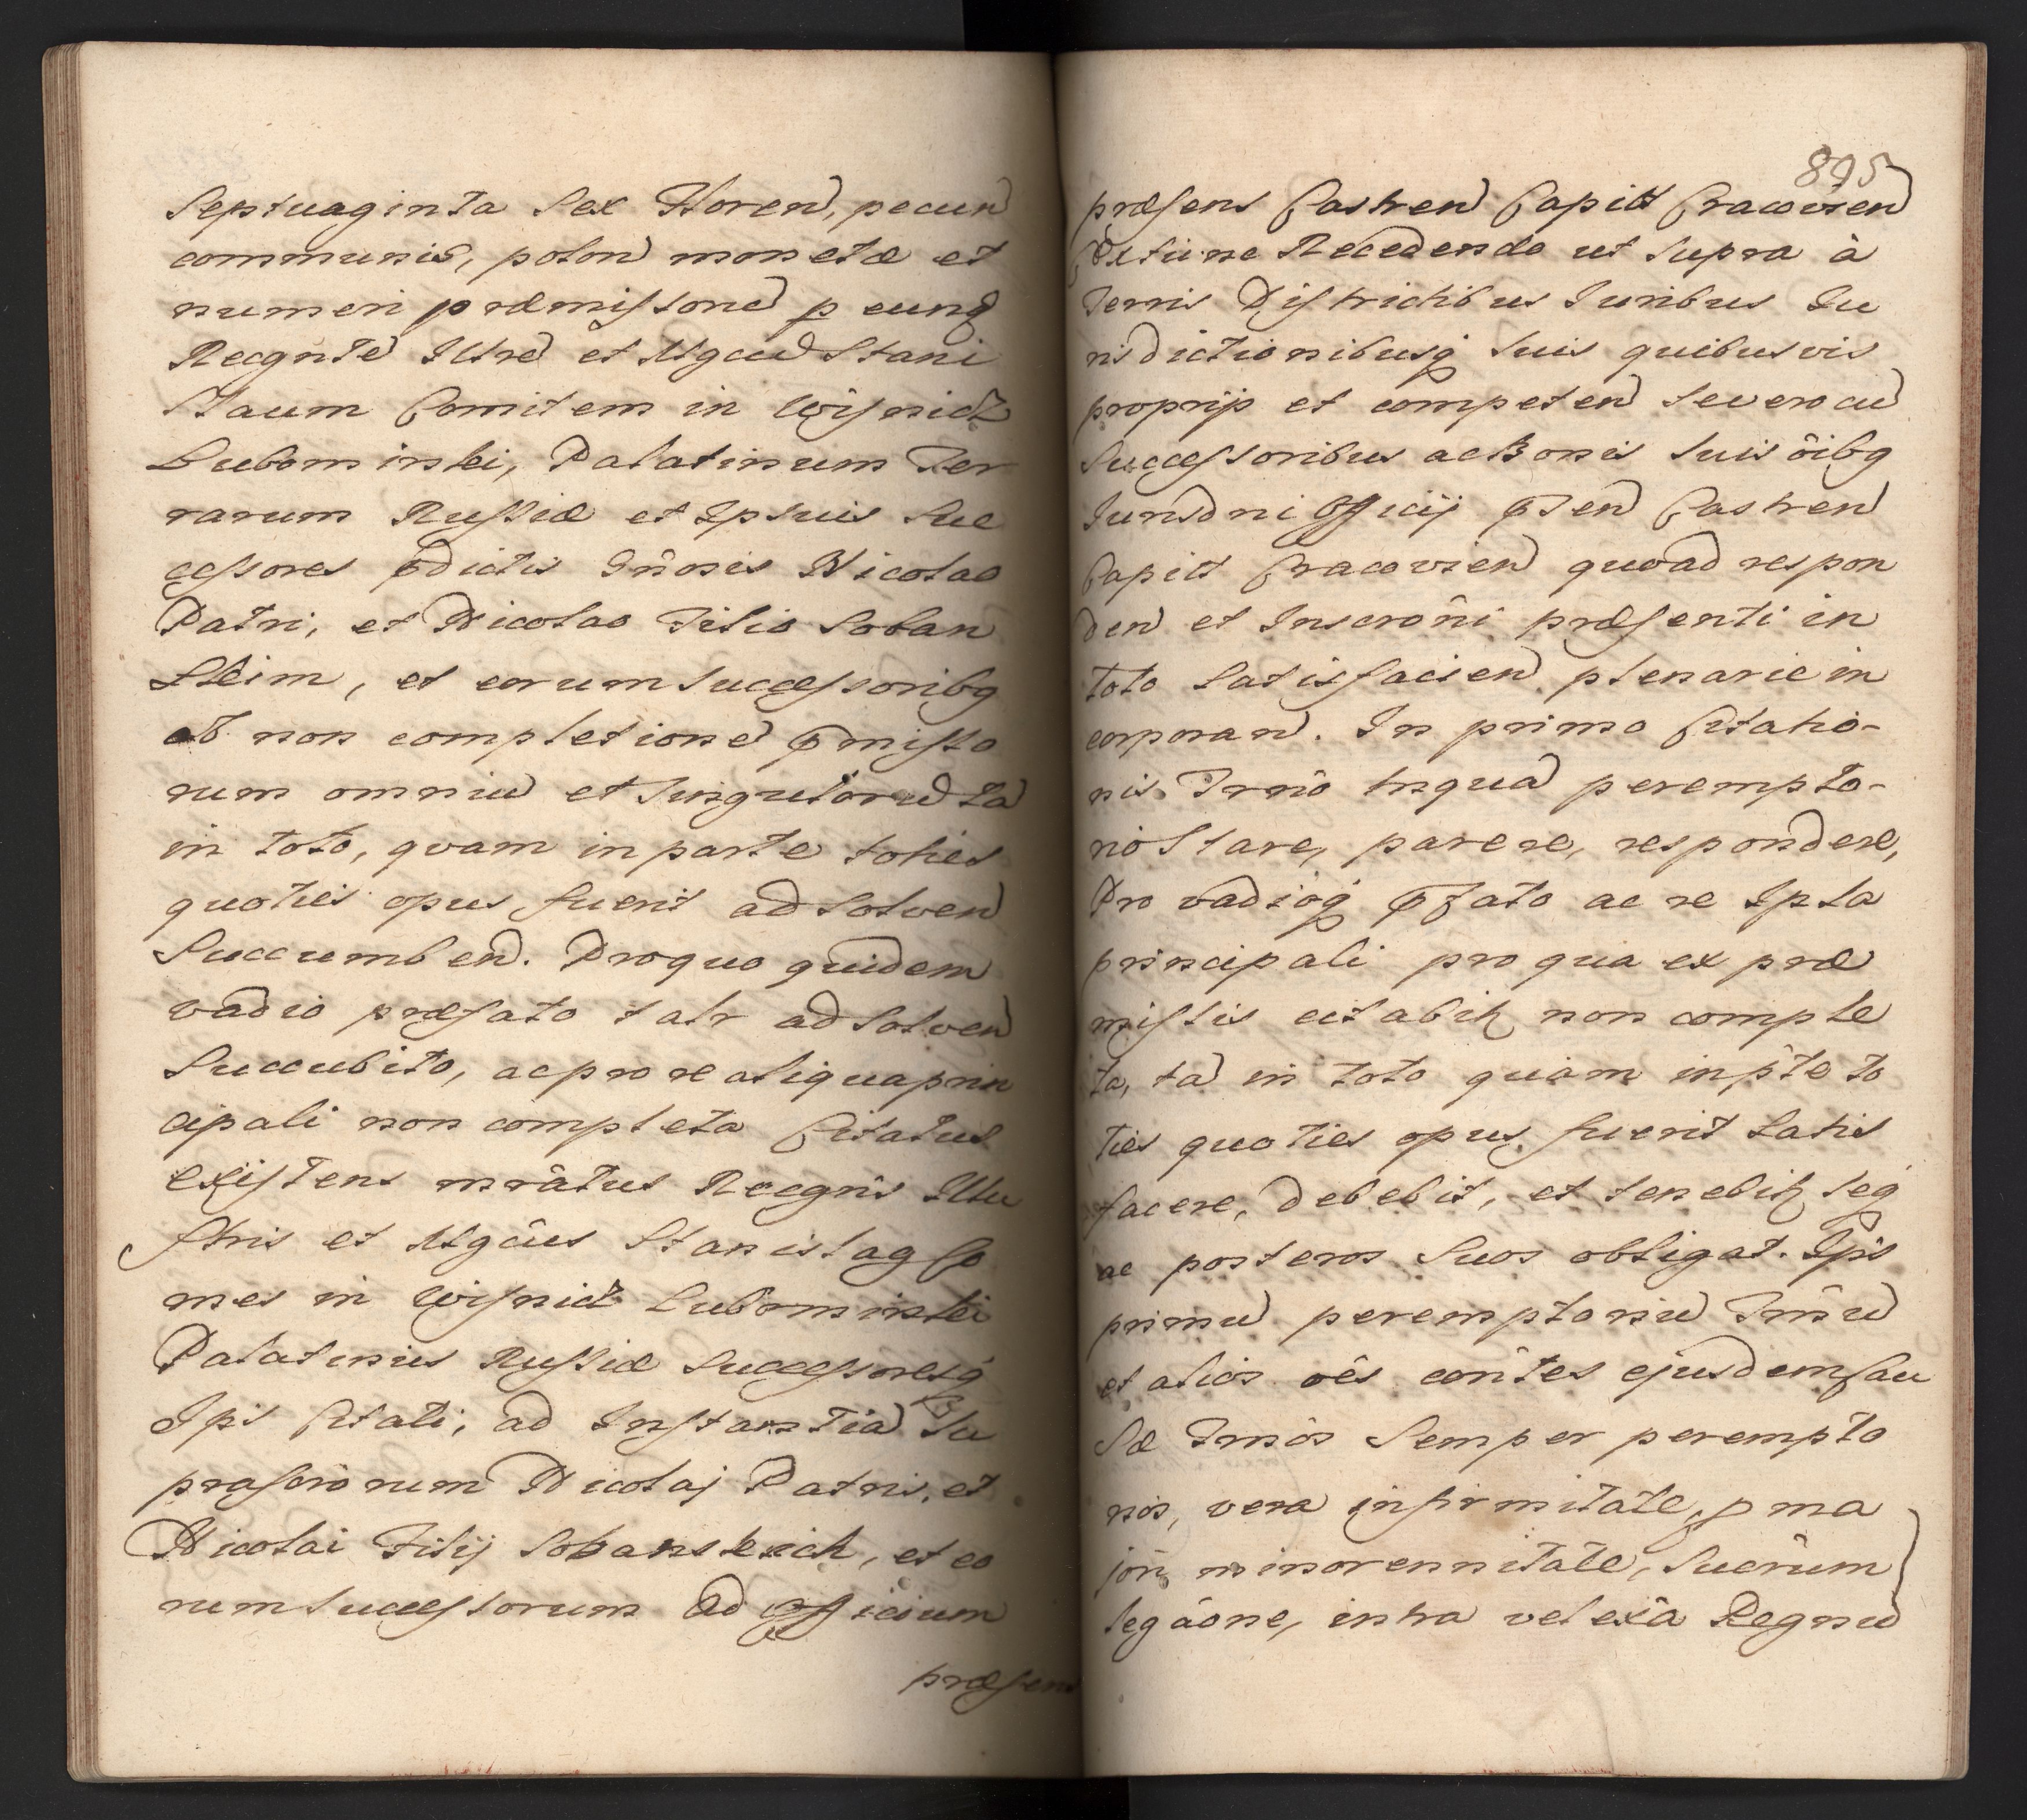 Septuaginta Sex Floren, pecun
communis, polon monetæ et
numeri præmissone p eund
Recgnte Illre et Mgcu Stani
slaum Comitem in Wisnicz
Lubomirski, Palatinum Ter
rarum Russiæ et Ipsuis Suc
cessores pdictis Gnôsis Nicolao
Patri, et Nicolao Filio Soban
skim, et eorum successoribq
ob non completione pmisso
rum omniu et Singulôru ta
in toto, quam in parte toties
quoties opus fuerit ad solven
Succumben. Proquo quidem
vadio præfato talr ad solven
Succubito, acpro re aliquaprin
cipali non completa Citatus
existens mrâtus Recgns Illu
stris et Mgcûs Stanislaq Co
mes in Wisnicz Lubomirski
Palatinus Russiæ Successoresq
Ipi Citati, ad Instantia Su
prascrorum Nicolaj Patris, et
Nicolai Filij Sobanskich, et eo
rum successorum Ad Officium
præsens
895
præsens Castren Capitt Cracovien
Recedendo ut supra à
Terris Districtibus Juribus Ju
risdictionibusq suis quibusvis
proprijs et competen se vero cu
Successoribus ac Bonis suis ôibq
Jurisdni Officij pzen Castren
Capitt Cracovien quoad respon
den et Inscrôni præsenti in
toto satisfacien plenarie in
corporan. In primo Citatio-
nis Trno tnqua perempto-
rio Stare, parere, respondere,
Pro vadioq pfato ac re Ipsa
principali pro qua ex præ
missis citabitz non comple
ta, ta in toto quam in pte to
ties quoties opus fuerit satis
facere, debebit, et tenebitz seq
ac posteros Suos obligat. Ipis
primu peremptoriu Trnu
et alios oês conêtes ejusdem Cau
sæ Trnôs Semper perempto
rios, vera infirmitate, p ma
jori, minorennitate, Sucrûm
legâone, intra vel exâ Regnu